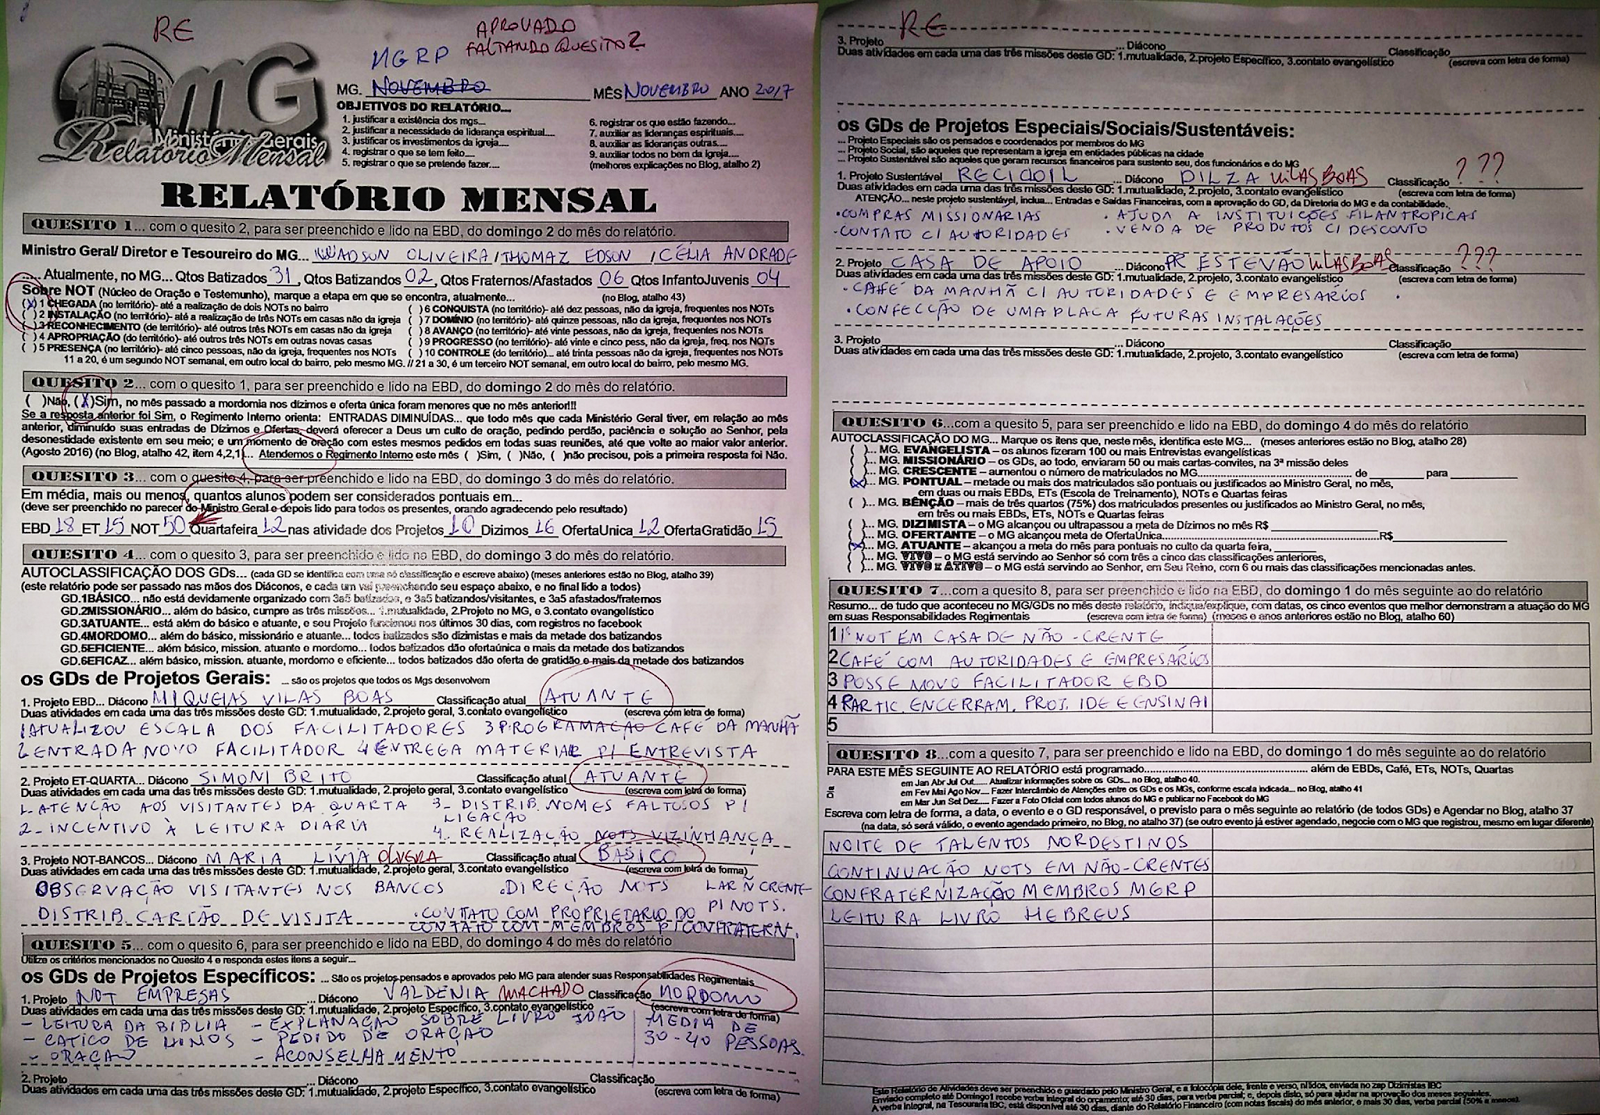 RE
APROVADO
FALTANDO QUESITO 2
MGRP
MG
Ministérios Gerais
Relatório Mensal
MG. NOVEMBRO MÊS NOVEMBRO ANO 2017
OBJETIVOS DO RELATÓRIO....
1. justificar a existência dos mgs...
2. justificar a necessidade de liderança espiritual....
3. justificar os investimentos da igreja....
4. registrar o que se tem feito....
5. registrar o que se pretende fazer....
6. registrar os que estão fazendo....
7. auxiliar as lideranças espirituais....
8. auxiliar as lideranças outras....
9. auxiliar todos no bem da igreja....
(melhores explicações no Blog, atalho 2)
RELATÓRIO MENSAL
QUESITO 1... com o quesito 2, para ser preenchido e lido na EBD, do domingo 2 do mês do relatório.
Ministro Geral/ Diretor e Tesoureiro do MG... WADSON OLIVEIRA/THOMAZ EDSON /CÉLIA ANDRADE
.... Atualmente, no MG... Qtos Batizados 31, Qtos Batizandos 02, Qtos Fraternos/Afastados 06 Qtos InfantoJuvenis 04
Sobre NOT (Núcleo de Oração e Testemunho), marque a etapa em que se encontra, atualmente... (no Blog, atalho 43)
(X) 1 CHEGADA (no território)- até a realização de dois NOTs no bairro
( ) 2 INSTALAÇÃO (no território)- até a realização de três NOTs em casas não da igreja
( ) 3 RECONHECIMENTO (de território)- até outros três NOTs em casas não da igreja
( ) 4 APROPRIAÇÃO (do território)- até outros três NOTs em outras novas casas
( ) 5 PRESENÇA (no território)- até cinco pessoas, não da igreja, frequentes nos NOTs
( ) 6 CONQUISTA (no território)- até dez pessoas, não da igreja, frequentes nos NOTs
( ) 7 DOMÍNIO (no território)- até quinze pessoas, não da igreja, frequentes nos NOTs
( ) 8 AVANÇO (no território)- até vinte pessoas, não da igreja, frequentes nos NOTs
( ) 9 PROGRESSO (no território)- até vinte e cinco pess, não da igreja, freq. nos NOTs
( ) 10 CONTROLE (do território)... até trinta pessoas, não da igreja, frequentes nos NOTs
11 a 20, é um segundo NOT semanal, em outro local do bairro, pelo mesmo MG. // 21 a 30, é um terceiro NOT semanal, em outro local do bairro, pelo mesmo MG.
QUESITO 2... com o quesito 1, para ser preenchido e lido na EBD, do domingo 2 do mês do relatório.
( )Não, (X)Sim, no mês passado a mordomia nos dízimos e oferta única foram menores que no mês anterior!!!
Se a resposta anterior foi Sim, o Regimento Interno orienta: ENTRADAS DIMINUÍDAS... que todo mês que cada Ministério Geral tiver, em relação ao mês
anterior, diminuído suas entradas de Dízimos e Ofertas, deverá oferecer a Deus um culto de oração, pedindo perdão, paciência e solução ao Senhor, pela
desonestidade existente em seu meio; e um momento de oração com estes mesmos pedidos em todas suas reuniões, até que volte ao maior valor anterior.
(Agosto 2016) (no Blog, atalho 42, item 4,2,1)... Atendemos o Regimento Interno este mês ( )Sim, ( )Não, ( )não precisou, pois a primeira resposta foi Não.
QUESITO 3... com o quesito 4, para ser preenchido e lido na EBD, do domingo 3 do mês do relatório.
Em média, mais ou menos, quantos alunos podem ser considerados pontuais em...
(deve ser preenchido no parecer do Ministro Geral e depois lido para todos os presentes, orando agradecendo pelo resultado)
EBD 18 ET 15 NOT 50 Quartafeira 12 nas atividade dos Projetos 10 Dizimos 16 OfertaUnica 12 OfertaGratidão 15
QUESITO 4... com o quesito 3, para ser preenchido e lido na EBD, do domingo 3 do mês do relatório
AUTOCLASSIFICAÇÃO DOS GDs... (cada GD se identifica com uma só classificação e escreve abaixo) (meses anteriores estão no Blog, atalho 39)
(este relatório pode ser passado nas mãos dos Diáconos, e cada um vai preenchendo seu espaço abaixo, e no final lido a todos)
GD.1BÁSICO... não está devidamente organizado com 3a5 batizados, e 3a5 batizandos/visitantes, e 3a5 afastados/fraternos
GD.2MISSIONÁRIO... além do básico, cumpre as três missões... 1.mutualidade, 2.Projeto no MG, e 3.contato evangelístico
GD.3ATUANTE... está além do básico e atuante, e seu Projeto funcionou nos últimos 30 dias, com registros no facebook
GD.4MORDOMO... além do básico, missionário e atuante... todos batizados são dizimistas e mais da metade dos batizandos
GD.5EFICIENTE... além do básico, mission. atuante e mordomo... todos batizados dão ofertaúnica e mais da metade dos batizandos
GD.6EFICAZ... além do básico, mission. atuante, mordomo e eficiente... todos batizados dão oferta de gratidão e mais da metade dos batizandos
os GDs de Projetos Gerais: ... são os projetos que todos os Mgs desenvolvem
1. Projeto EBD... Diácono MIQUEIAS VILAS BOAS Classificação atual ATUANTE
Duas atividades em cada uma das três missões deste GD: 1.mutualidade, 2.projeto geral, 3.contato evangelístico (escreva com letra de forma)
1 ATUALIZOU ESCALA DOS FACILITADORES 3 PROGRAMAÇÃO CAFÉ DA MANHÃ
2 ENTRADA NOVO FACILITADOR 4 ENTREGA MATERIAL P/ ENTREVISTA
2. Projeto ET-QUARTA... Diácono SIMONI BRITO Classificação atual ATUANTE
Duas atividades em cada uma das três missões deste GD: 1.mutualidade, 2.projeto geral, 3.contato evangelístico (escreva com letra de forma)
1- ATENÇÃO AOS VISITANTES DA QUARTA 3- DISTRIB. NOMES FALTOSOS P/ LIGAÇÃO
2- INCENTIVO À LEITURA DIÁRIA
4. REALIZAÇÃO NOTS VIZINHANÇA
3. Projeto NOT-BANCOS... Diácono MARIA LÍVIA OLVEIRA Classificação atual BÁSICO
Duas atividades em cada uma das três missões deste GD: 1.mutualidade, 2.projeto geral, 3.contato evangelístico (escreva com letra de forma)
OBSERVAÇÃO VISITANTES NOS BANCOS . DIREÇÃO NOTS LAR Ñ CRENTE
DISTRIB. CARTÃO DE VISITA . CONTATO COM PROPRIETARIO DO P/ NOTS.
CONTATO COM MEMBROS P/ CONFRATERN.
QUESITO 5... com o quesito 6, para ser preenchido e lido na EBD, do domingo 4 do mês do relatório
Utilize os critérios mencionados no Quesito 4 e responda estes itens a seguir...
os GDs de Projetos Específicos: ... São os projetos pensados e aprovados pelo MG para atender suas Responsabilidades Regimentais
1. Projeto NOT EMPRESAS ... Diácono VALDENIA MACHADO Classificação MORDOMO
Duas atividades em cada uma das três missões deste GD: 1.mutualidade, 2.projeto Específico, 3.contato evangelístico (escreva com letra de forma)
- LEITURA DA BIBLIA - EXPLANAÇÃO SOBRE LIVRO JOÃO MEDIA DE
- CATICO DE HINOS - PEDIDO DE ORAÇÃO 30-40 PESSOAS.
- ORAÇÃO - ACONSELHAMENTO
2. Projeto ... Diácono Classificação
Duas atividades em cada uma das três missões deste GD: 1.mutualidade, 2.projeto Específico, 3.contato evangelístico (escreva com letra de forma)
RE
3. Projeto ... Diácono Classificação
Duas atividades em cada uma das três missões deste GD: 1.mutualidade, 2.projeto Específico, 3.contato evangelístico (escreva com letra de forma)
os GDs de Projetos Especiais/Sociais/Sustentáveis:
... Projeto Especiais são os pensados e coordenados por membros do MG
... Projeto Social, são aqueles que representam a igreja em entidades públicas na cidade
... Projeto Sustentável são aqueles que geram recursos financeiros para sustento seu, dos funcionários e do MG
1. Projeto Sustentável RECIDOIL ... Diácono DILZA VILAS BOAS Classificação ???
Duas atividades em cada uma das três missões deste GD: 1.mutualidade, 2.projeto, 3.contato evangelístico (escreva com letra de forma)
ATENÇÃO... neste projeto sustentável, inclua... Entradas e Saídas Financeiras, com a aprovação do GD, da Diretoria do MG e da contabilidade.
. COMPRAS MISSIONARIAS . AJUDA A INSTITUIÇÕES FILANTROPICAS
. CONTATO C/ AUTORIDADES . VENDA DE PRODUTOS C/ DESCONTO
2. Projeto CASA DE APOIO Diácono PR ESTEVÃO VILAS BOAS Classificação ???
Duas atividades em cada uma das três missões deste GD: 1.mutualidade, 2.projeto, 3.contato evangelístico (escreva com letra de forma)
. CAFÉ DA MANHÃ C/ AUTORIDADES E EMPRESARIOS .
. CONFECÇÃO DE UMA PLACA FUTURAS INSTALAÇÕES
3. Projeto ... Diácono Classificação
Duas atividades em cada uma das três missões deste GD: 1.mutualidade, 2.projeto, 3.contato evangelístico (escreva com letra de forma)
QUESITO 6... com o quesito 5, para ser preenchido e lido na EBD, do domingo 4 do mês do relatório
AUTOCLASSIFICAÇÃO DO MG... Marque os itens que, neste mês, identifica este MG... (meses anteriores estão no Blog, atalho 28)
( )... MG. EVANGELISTA – os alunos fizeram 100 ou mais Entrevistas evangelísticas
( )... MG. MISSIONÁRIO – os GDs, ao todo, enviaram 50 ou mais cartas-convites, na 3ª missão deles
( )... MG. CRESCENTE – aumentou o número de matriculados no MG de para
(X)... MG. PONTUAL – metade ou mais dos matriculados são pontuais ou justificados ao Ministro Geral, no mês,
em duas ou mais EBDs, ETs (Escola de Treinamento), NOTs e Quartas feiras
( )... MG. BÊNÇÃO – mais de três quartos (75%) dos matriculados presentes ou justificados ao Ministro Geral, no mês,
em três ou mais EBDs, ETs, NOTs e Quartas feiras
( )... MG. DIZIMISTA – o MG alcançou ou ultrapassou a meta de Dízimos no mês R$
( )... MG. OFERTANTE – o MG alcançou meta de OfertaÚnica R$
(X)... MG. ATUANTE – alcançou a meta do mês para pontuais no culto da quarta feira,
( )... MG. VIVO – o MG está servindo ao Senhor só com três a cinco das classificações anteriores,
( )... MG. VIVO e ATIVO – o MG está servindo ao Senhor, em Seu Reino, com 6 ou mais das classificações mencionadas antes.
QUESITO 7... com a quesito 8, para ser preenchido e lido na EBD, do domingo 1 do mês seguinte ao do relatório
Resumo... de tudo que aconteceu no MG/GDs no mês deste relatório, indique/explique, com datas, os cinco eventos que melhor demonstram a atuação do MG
em suas Responsabilidades Regimentais (escreva com letra de forma) (meses e anos anteriores estão no Blog, atalho 60)
1 1º NOT EM CASA DE NÃO-CRENTE
2 CAFÉ COM AUTORIDADES E EMPRESÁRIOS
3 POSSE NOVO FACILITADOR EBD
4 PARTIC. ENCERRAM. PROJ. IDE E ENSINAI
5
QUESITO 8...com a quesito 7, para ser preenchido e lido na EBD, do domingo 1 do mês seguinte ao do relatório
PARA ESTE MÊS SEGUINTE AO RELATÓRIO está programado... além de EBDs, Café, ETs, NOTs, Quartas
Dia
em Jan Abr Jul Out.... Atualizar informações sobre os GDs... no Blog, atalho 40.
em Fev Mai Ago Nov... Fazer Intercâmbio de Atenções entre os GDs e os MGs, conforme escala indicada... no Blog, atalho 41
em Mar Jun Set Dez.... Fazer a Foto Oficial com todos alunos do MG e publicar no Facebook do MG
Escreva com letra de forma, a data, o evento e o GD responsável, o previsto para o mês seguinte ao relatório (de todos GDs) e Agendar no Blog, atalho 37
(na data, só será valido, o evento agendado primeiro, no Blog, no atalho 37) (se outro evento já estiver agendado, negocie com o MG que registrou, mesmo em lugar diferente)
NOITE DE TALENTOS NORDESTINOS
CONTINUAÇÃO NOTS EM NÃO-CRENTES
CONFRATERNIZAÇÃO MEMBROS MGRP
LEITURA LIVRO HEBREUS
Este Relatório de Atividades deve ser preenchido e guardado pelo Ministro Geral, e a fotocópia dele, frente e verso, nítidos, enviada no zap Dizimistas IBC
Enviado completo até Domingo1 recebe verba integral do orçamento; até 30 dias, para verba parcial; e, depois disto, só para ajudar na aprovação dos meses seguintes.
A verba integral, na Tesouraria IBC, está disponível até 30 dias, diante do Relatório Financeiro (com notas fiscais) do mês anterior, e mais 30 dias, verba parcial (50% a menos).